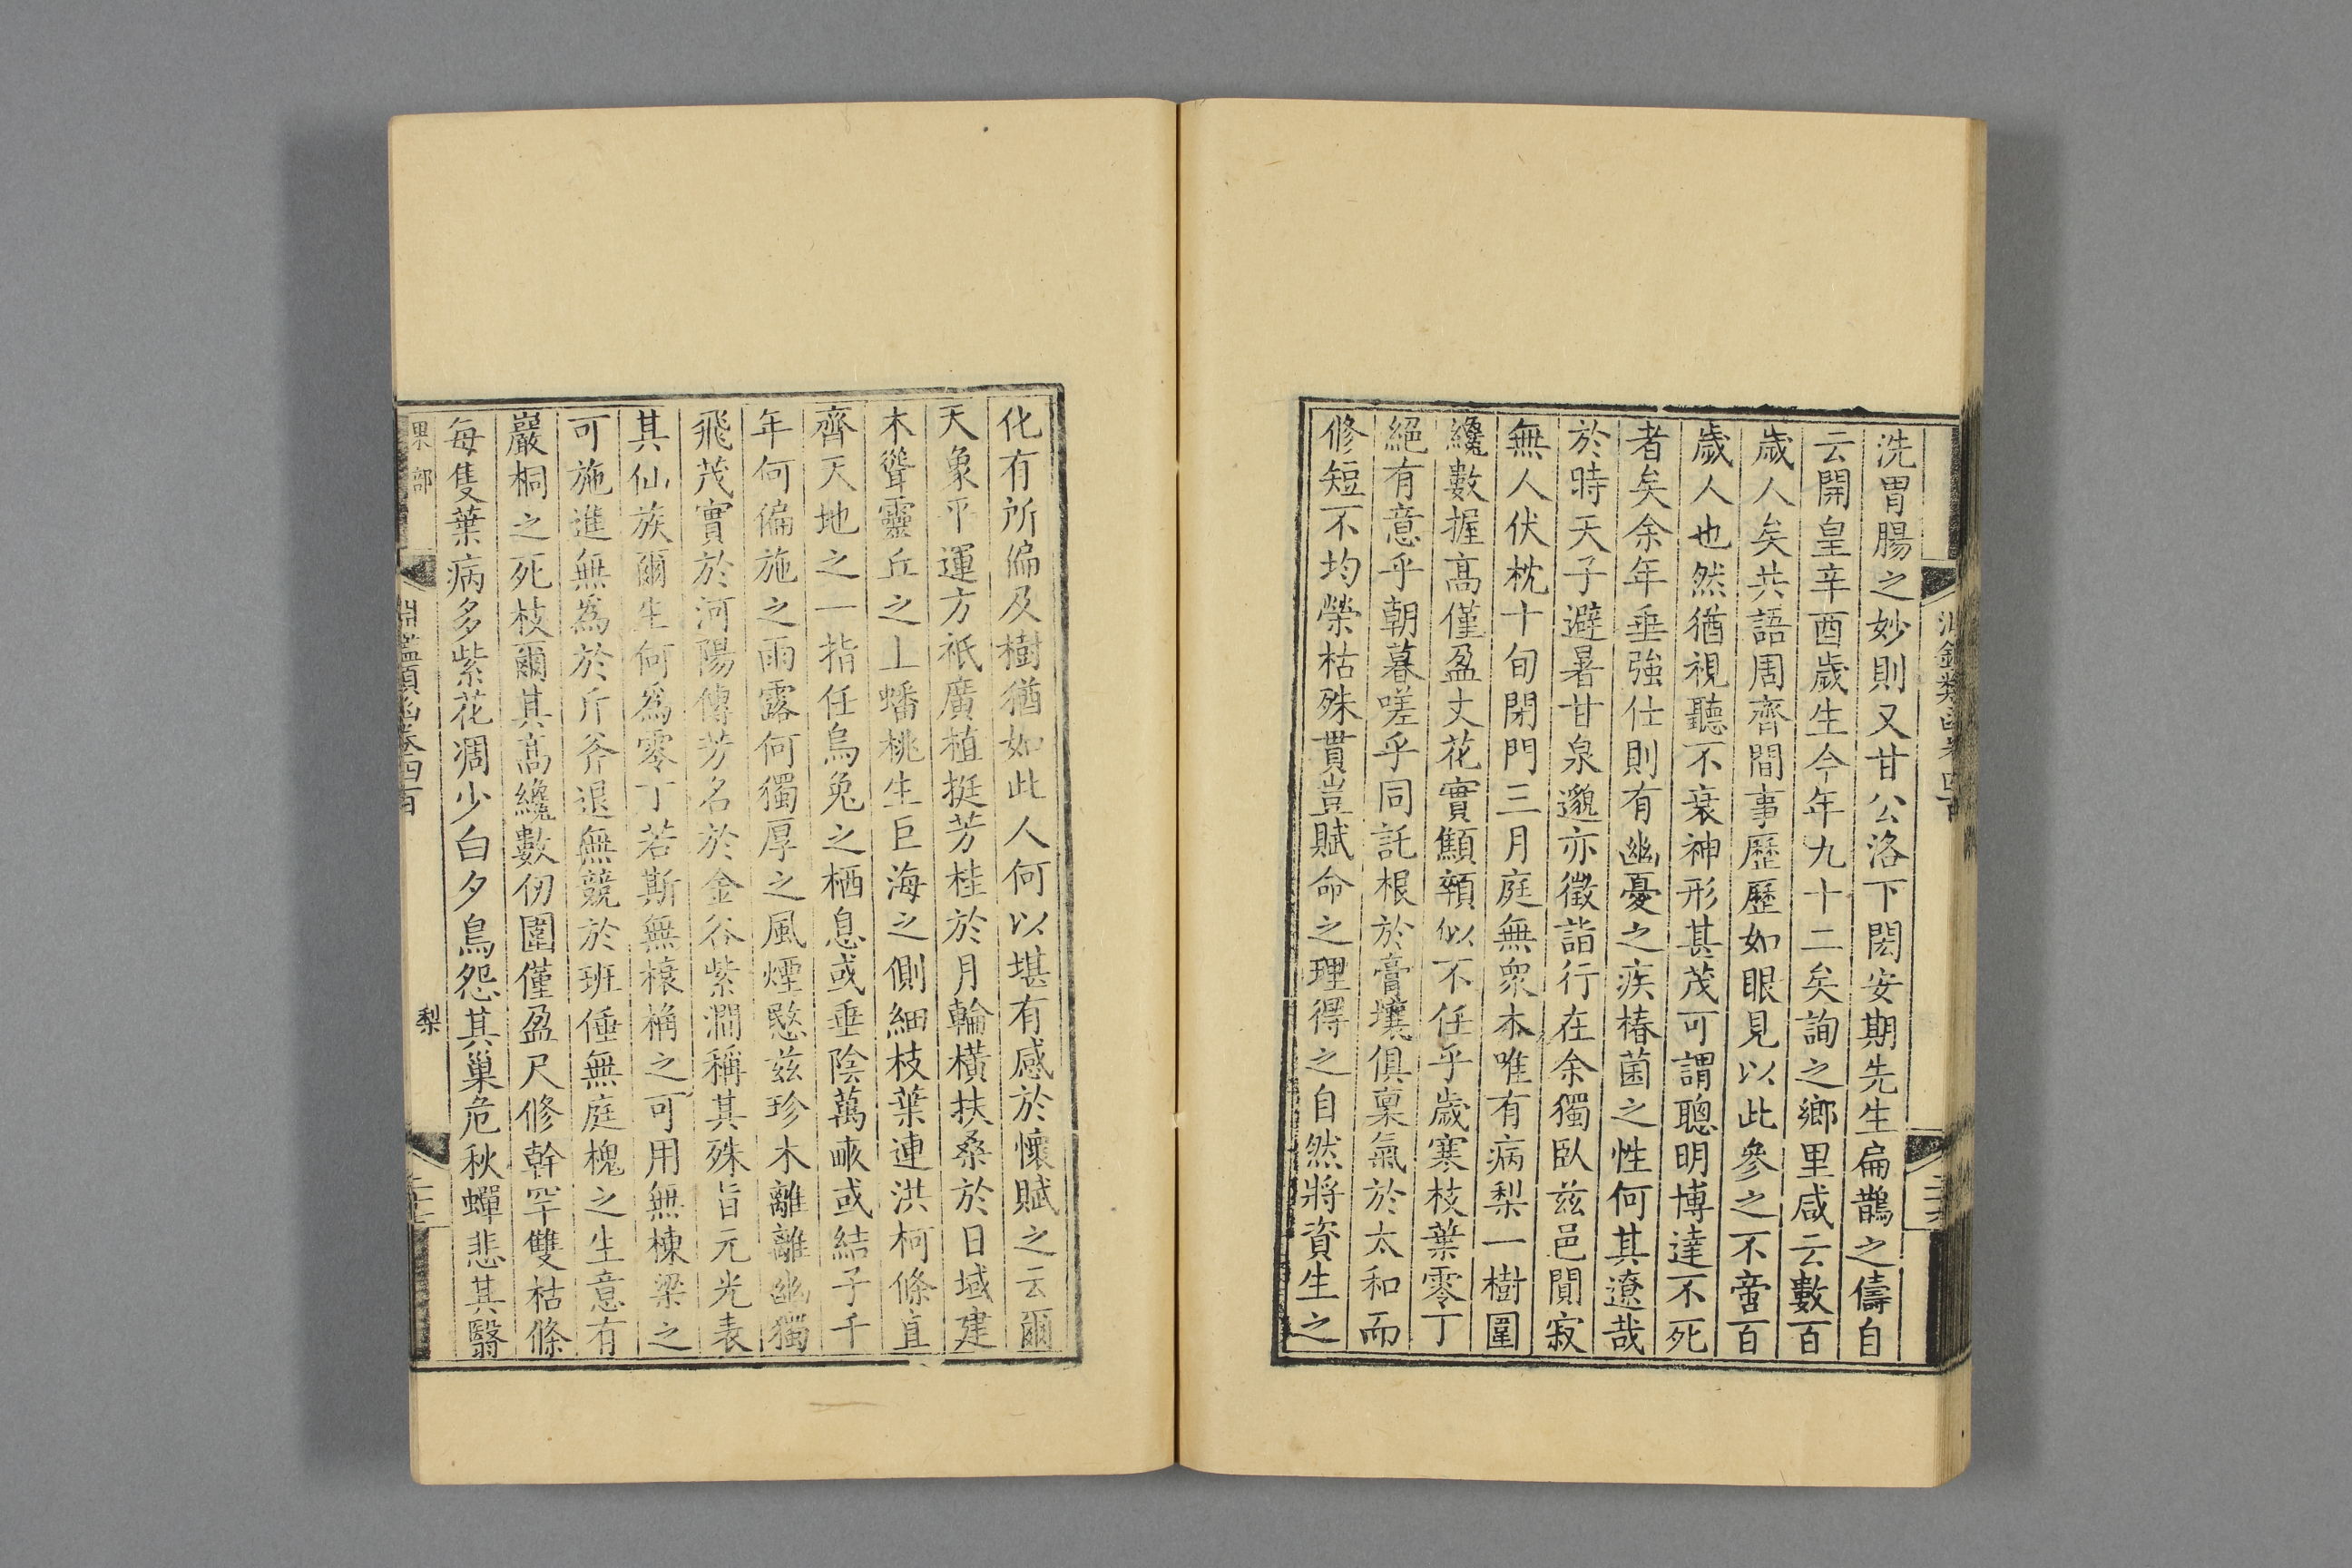 洗胃腸之妙則又甘公洛下閎安期先生扁鵲之儔自
云開皇辛酉歲生今年九十二矣詢之鄉里咸云數百
歲人矣共語周齊間事歷歷如眼見以此參之不啻百
歲人也然猶視聽不衰神形甚茂可謂聰明博達不死
者矣余年垂強仕則有幽憂之疾椿菌之性何其遼哉
於時天子避暑甘泉邈亦徵詣行在余獨臥茲邑閴寂
無人伏枕十旬閉門三月庭無衆木唯有病梨一樹圍
纔數握高僅盈丈花實顦顇似不任乎歲寒枝葉零丁
絕有意乎朝暮嗟乎同託根於膏壤俱稟氣於太和而
修短不均榮枯殊貫豈賦命之理得之自然將資生之
化有所偏及樹猶如此人何以堪有感於懷賦之云爾
天象平運方祇廣植挺芳桂於月輪橫扶桑於日域建
木聳靈丘之上蟠桃生巨海之側細枝葉連洪柯條直
齊天地之一指任烏兔之栖息或垂陰萬畝或結子千
年何偏施之雨露何獨厚之風煙愍茲珍木離離幽獨
飛茂實於河陽傳芳名於金谷紫澗稱其殊旨元光表
其仙族爾生何爲零丁若斯無榱桷之可用無棟梁之
可施進無爲於斤斧退無競於班倕無庭槐之生意有
巖桐之死枝爾其高纔數仞圍僅盈尺修幹罕雙枯條
每隻葉病多紫花凋少白夕鳥怨其巢危秋蟬悲其翳
果部
淵鑑類函卷四百
梨